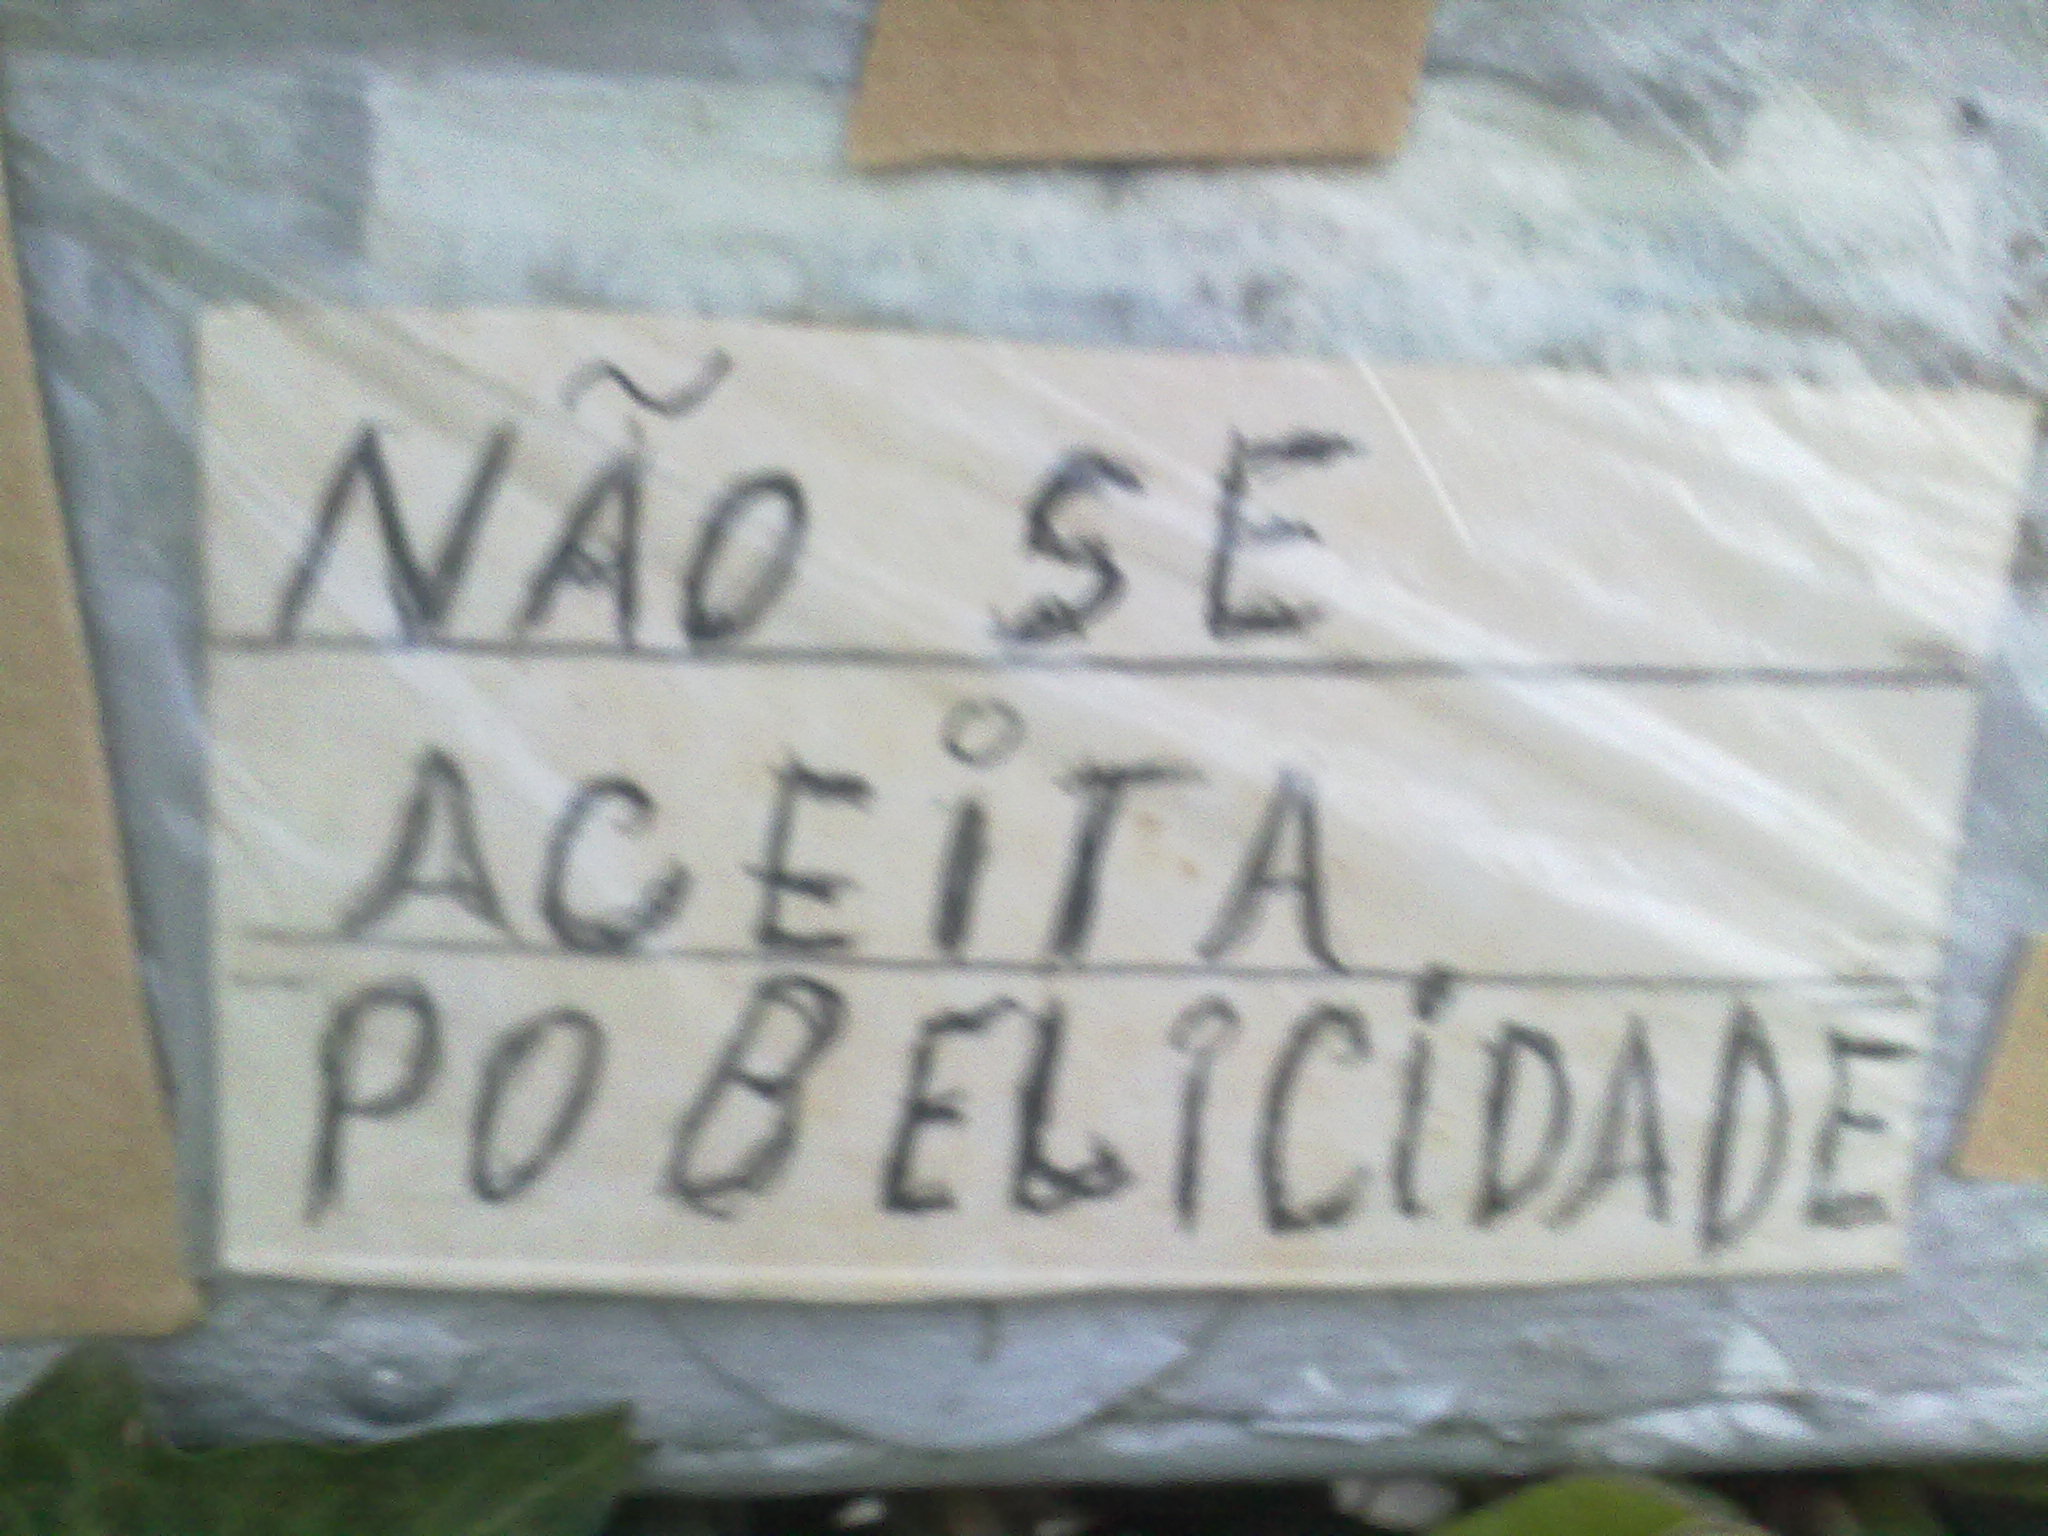 NÃO SE
ACEiTA
POBELiCiDADE